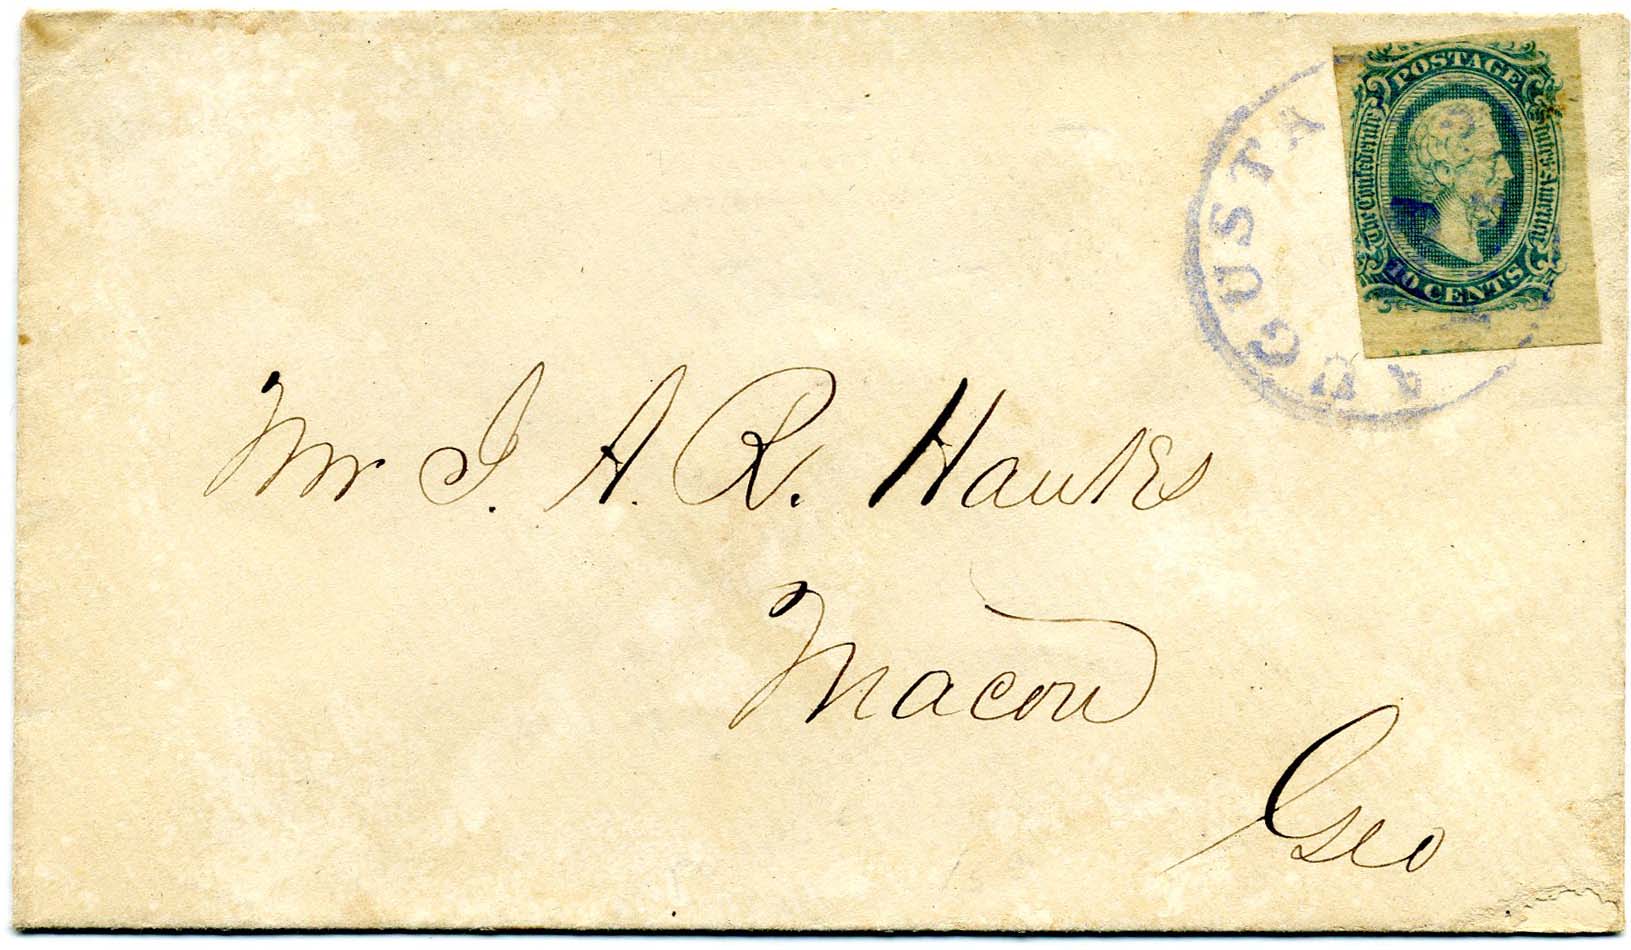 AUGUSTA
POSTAGE
The Confederate States of America
10 CENTS
Mr J. A. R. Hanks
Macon
Geo